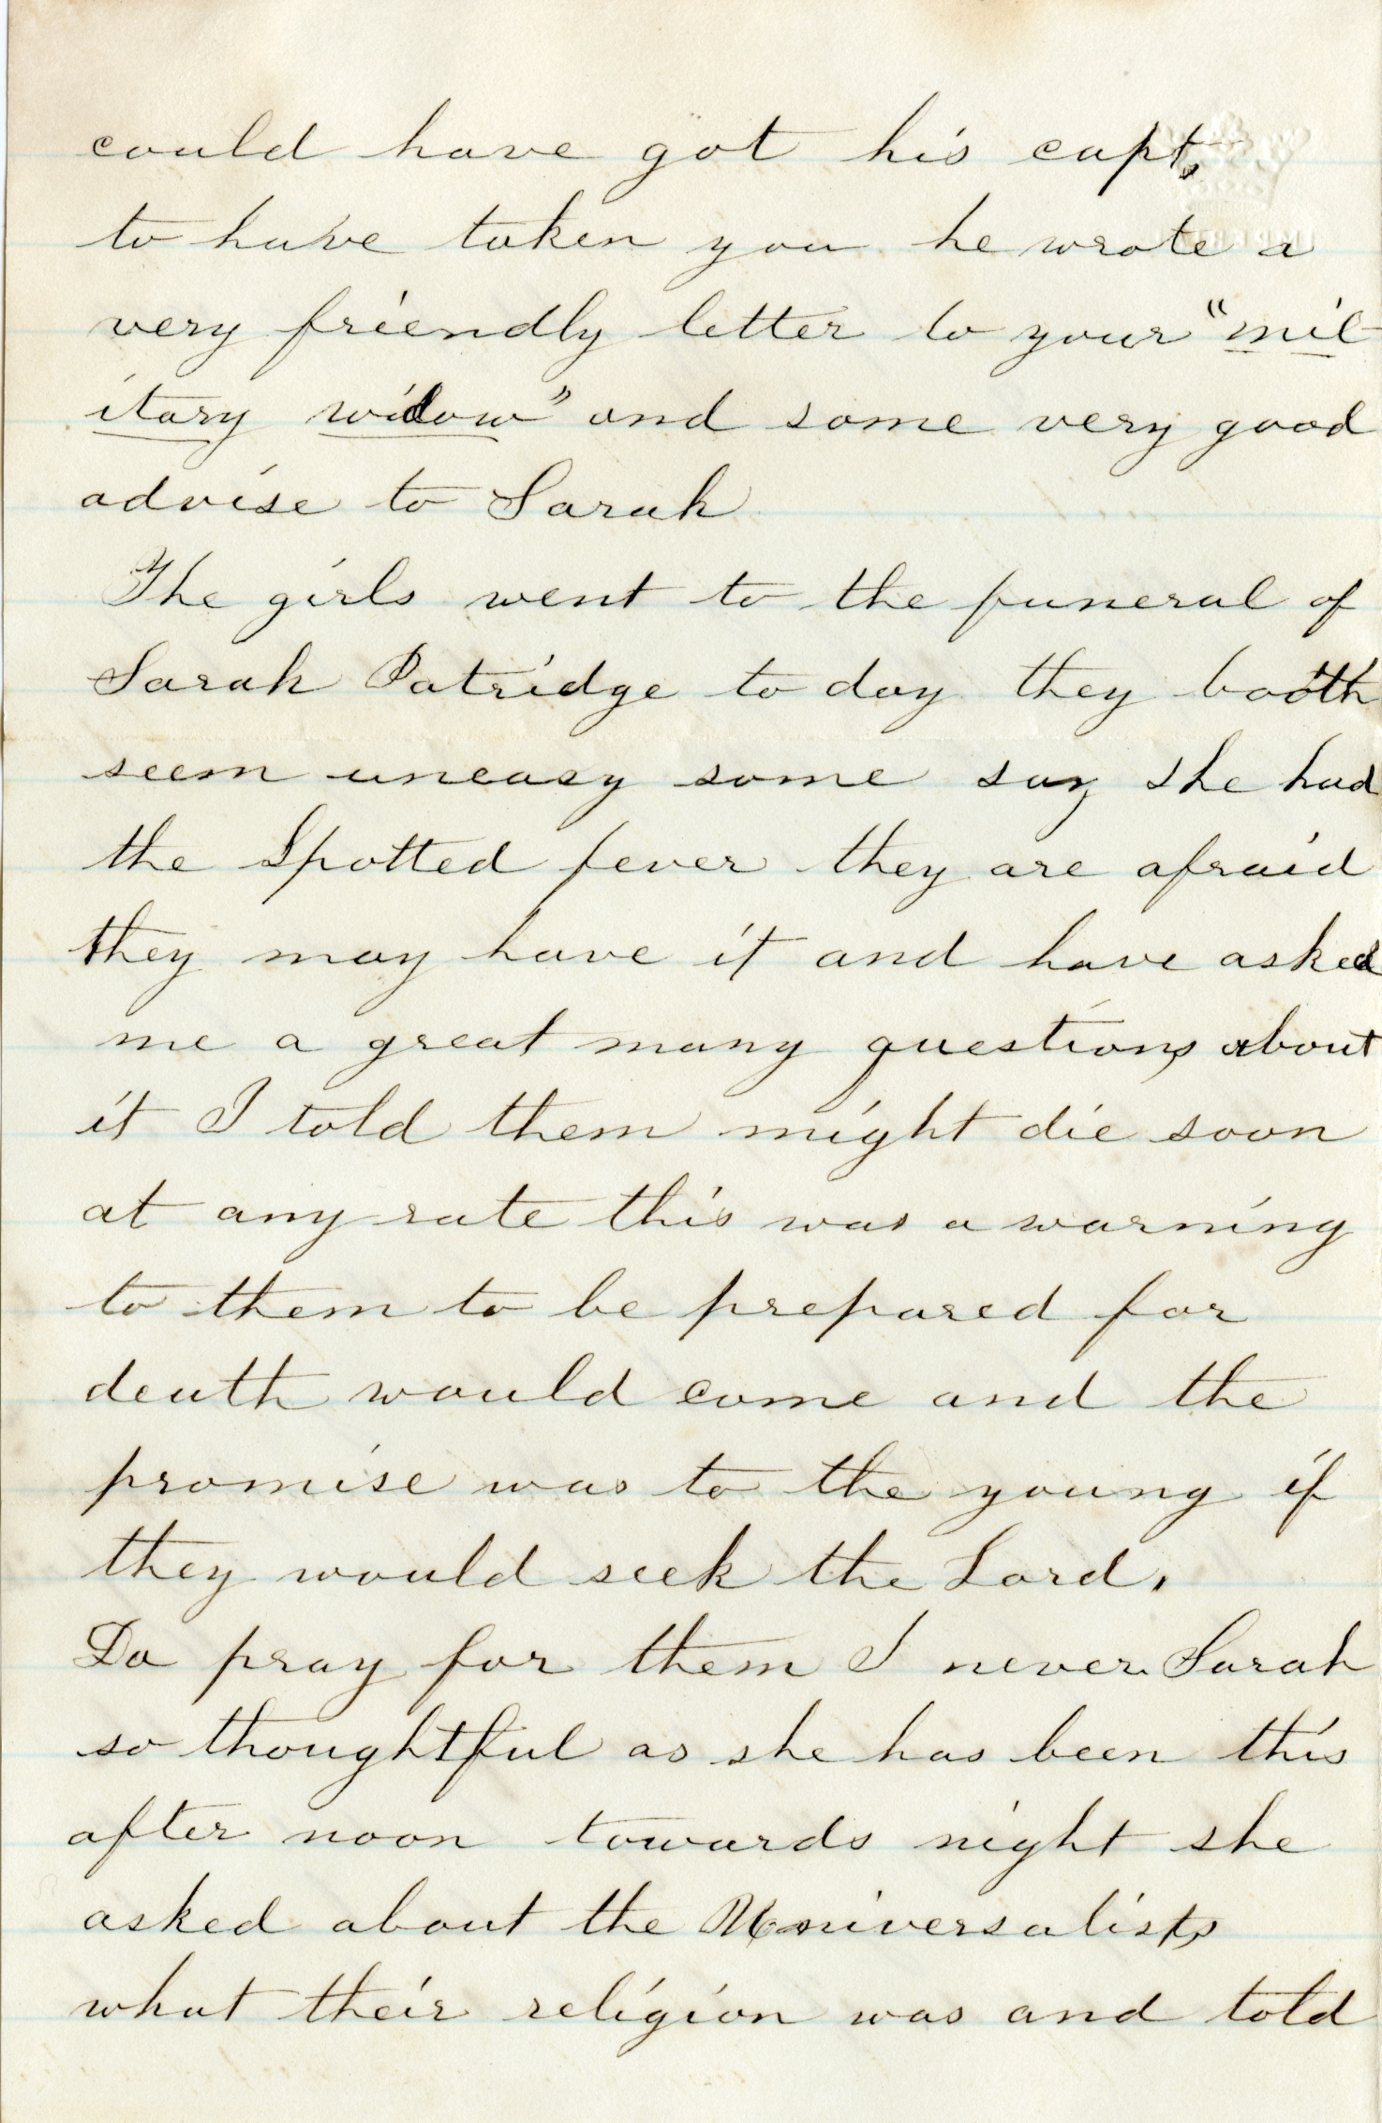 could have got his capt,
to have taken you he wrote a
very friendly letter to your "mil
itary widow" and some very good
advise to Sarah
The girls went to the funeral of
Sarah Patridge to day they booth
seem uneasy some say she had
the Spotted fever they are afraid
they may have it and have asked
me a great many questions about
it I told them might die soon
at any rate this was a warning
to them to be prepared for
death would come and the
promise was to the young if
they would seek the Lord.
Do pray for them I never Sarah
so thoughtful as she has been this
after noon towards night she
asked about the Universalists
what their religion was and told